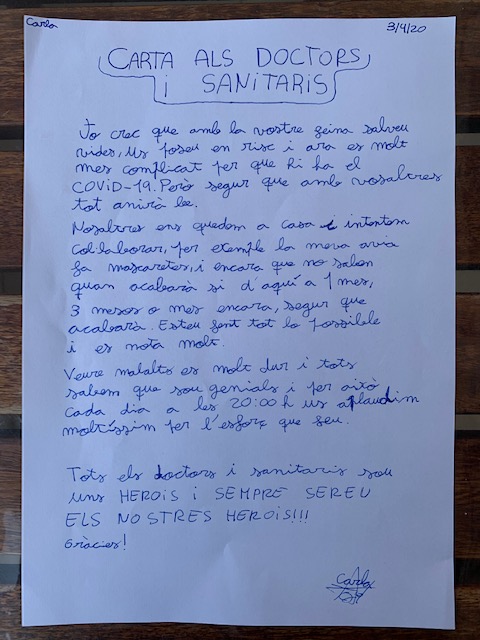 Carla
3/4/20
CARTA ALS DOCTORS
I SANITARIS
Jo crec que amb la vostre feina salveu
vides, us poseu en risc i ara es molt
mes complicat per que hi ha el
COVID-19. Però segur que amb vosaltres
tot anirà be.
Nosaltres ens quedem a casa i intentem
col·laborar, per exemple la meva avia
fa mascaretes, i encara que no saben
quan acabarà si d'aquí a 1 mes,
3 mesos o mes encara, segur que
acabarà. Esteu fent tot lo possible
i es nota molt.
Veure malalts es molt dur i tots
sabem que sou genials i per això
cada dia a les 20:00 h us aplaudim
moltíssim per l'esforç que feu.
Tots els doctors i sanitaris sou
uns HEROIS I SEMPRE SEREU
ELS NOSTRES HEROIS!!!
Gràcies!
Carla